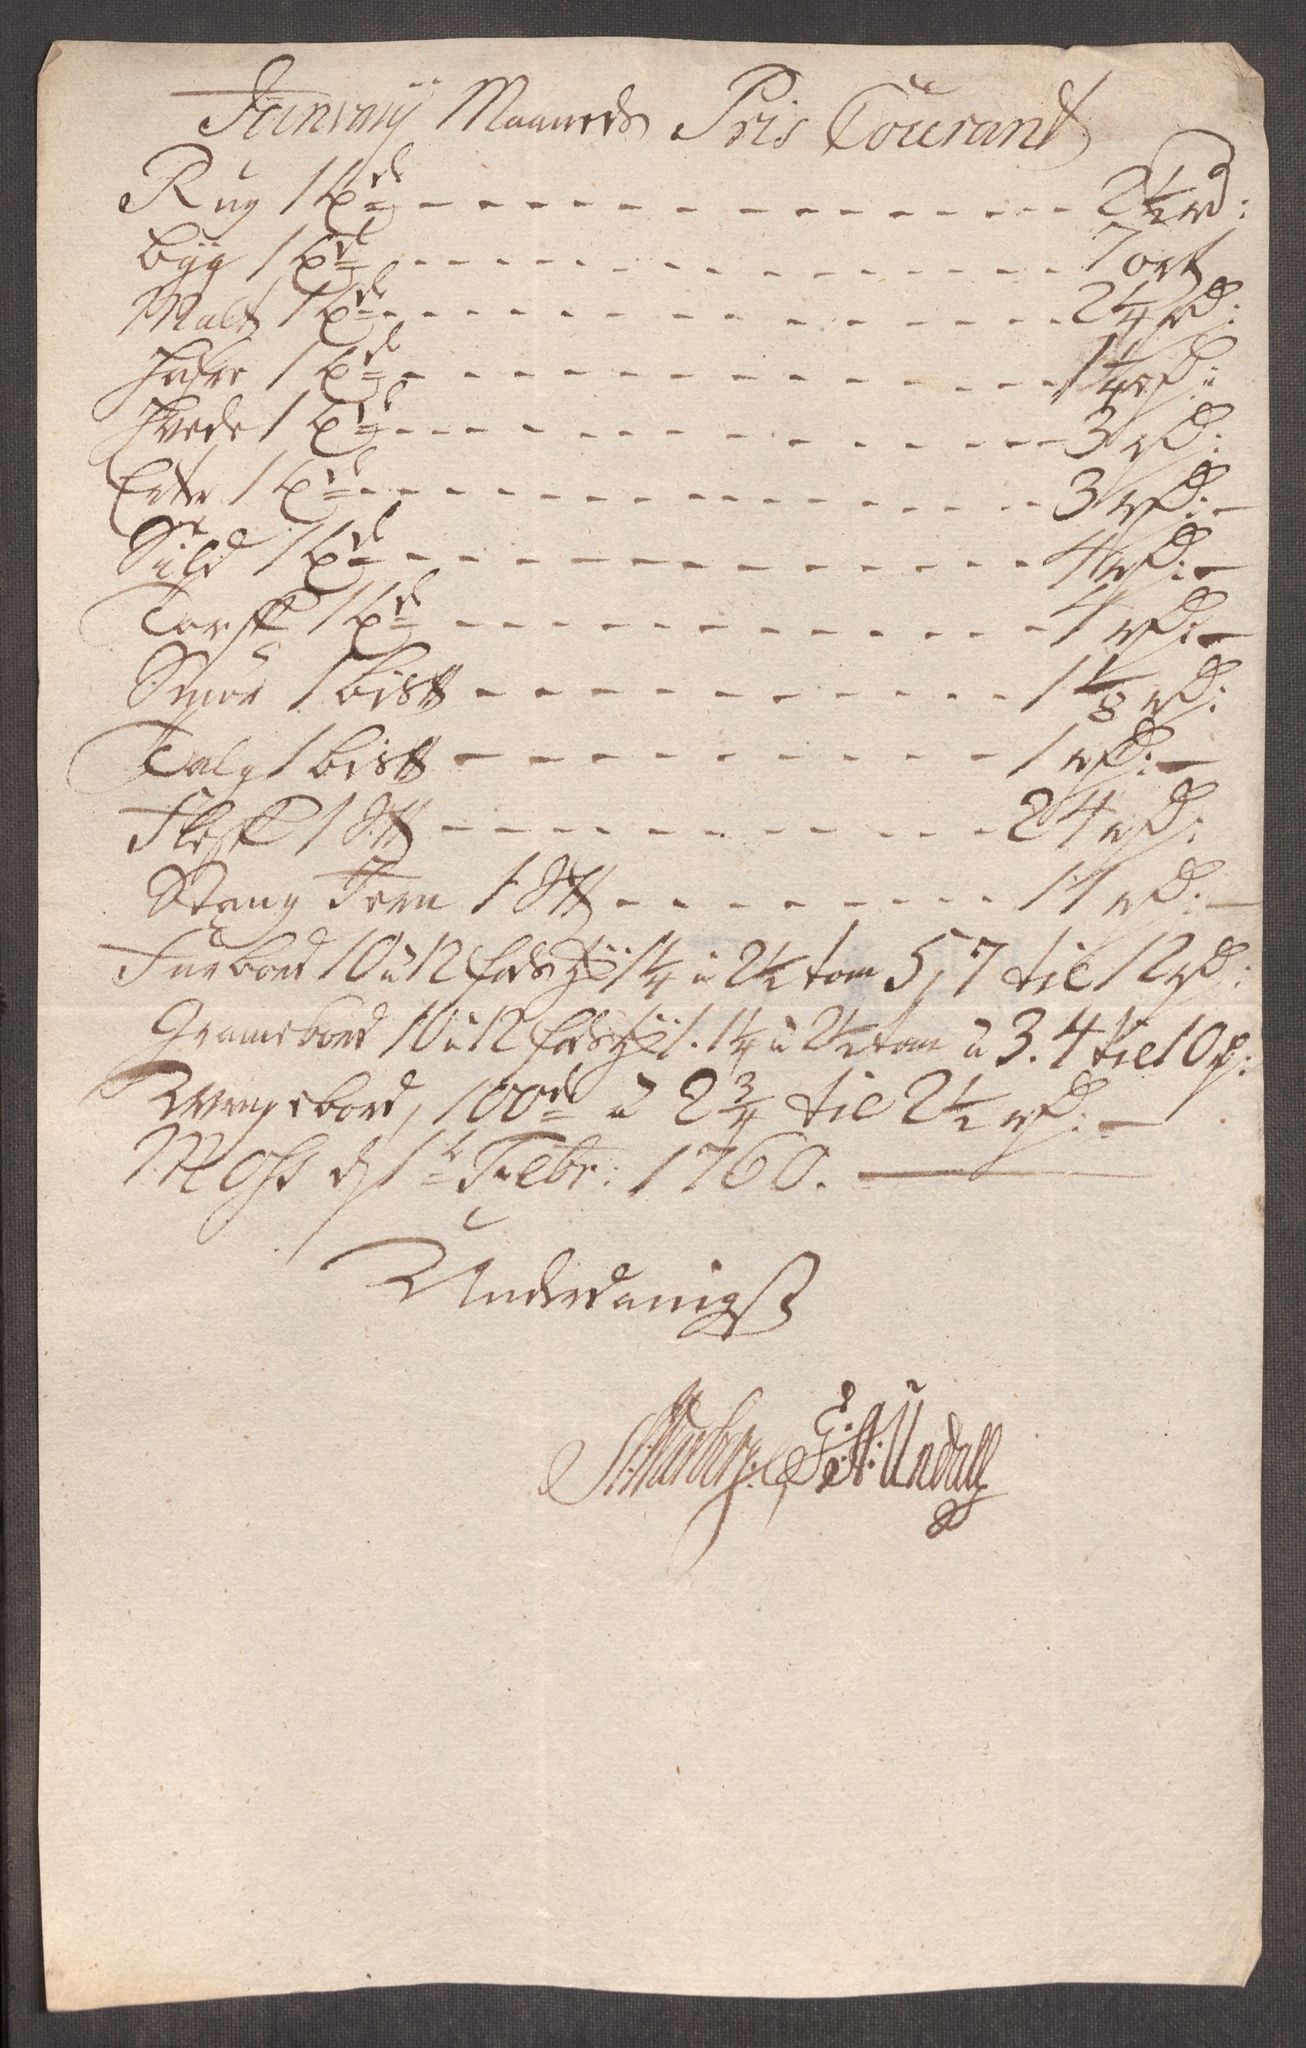 Januarij Maaneds Pris Courant
Rug 1 tde - - - 2½ rd:
Byg 1 td - - - 7 ort
Malt 1 tde - - - 2¼ rd:
Hafre 1 tde - - - 1¼ rd:
Hvede 1 td - - - 3 rd:
Erter 1 td - - - 3 rd: -
Sild 1 td - - - 4 rd: -
Torsk 1 td - - - 4 rd: -
Smør 1 bis℔ - - - 1⅛ rd:
Talg 1 bis℔ - - - 1 rd: -
Flesk 1 S℔ - - - 24 rd:
Stang Jern 1 S℔ - - - 11 rd: -
Furbord 10 à 12 fods 1¼ à 2½ tom 5, 7 til 12 rd:
Granebord 10 à 12 fods 1. 1¼ à 2½ tom à 3. 4 til 10 r:
Vragebord, 100de à 2¾ til 2½ rd: -
Moss d 1t Febr: 1760.
Underdanigst